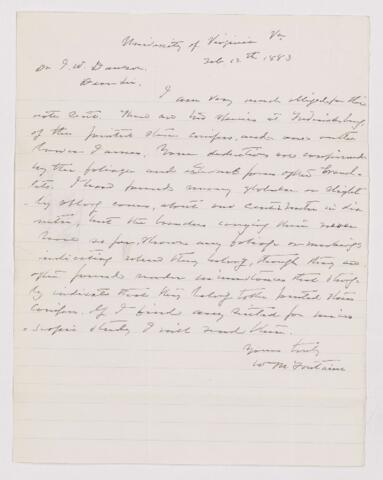 University of Virginia Va
Feb. 12th 1883
Dr J. W. Dawson.
Dear Sir.
I am very much obliged for this
note sent. There are two stems at Fredericksburg
of the jointed stem conifers, and one on the
James. Your deductions are confirmed
by the foliage and form of the branch-
lets. I have found many globular or slight-
ly oblong cones, about one centimeter in dia
meter, but the branches carrying them never
have so far shown any foliage or markings
indicating where they belong, though they are
often found under circumstances that strong-
ly indicate that they belong to the jointed stem
Conifer. If I find any suited for micro
scopic study I will send them.
Yours truly
Wm M Fontaine